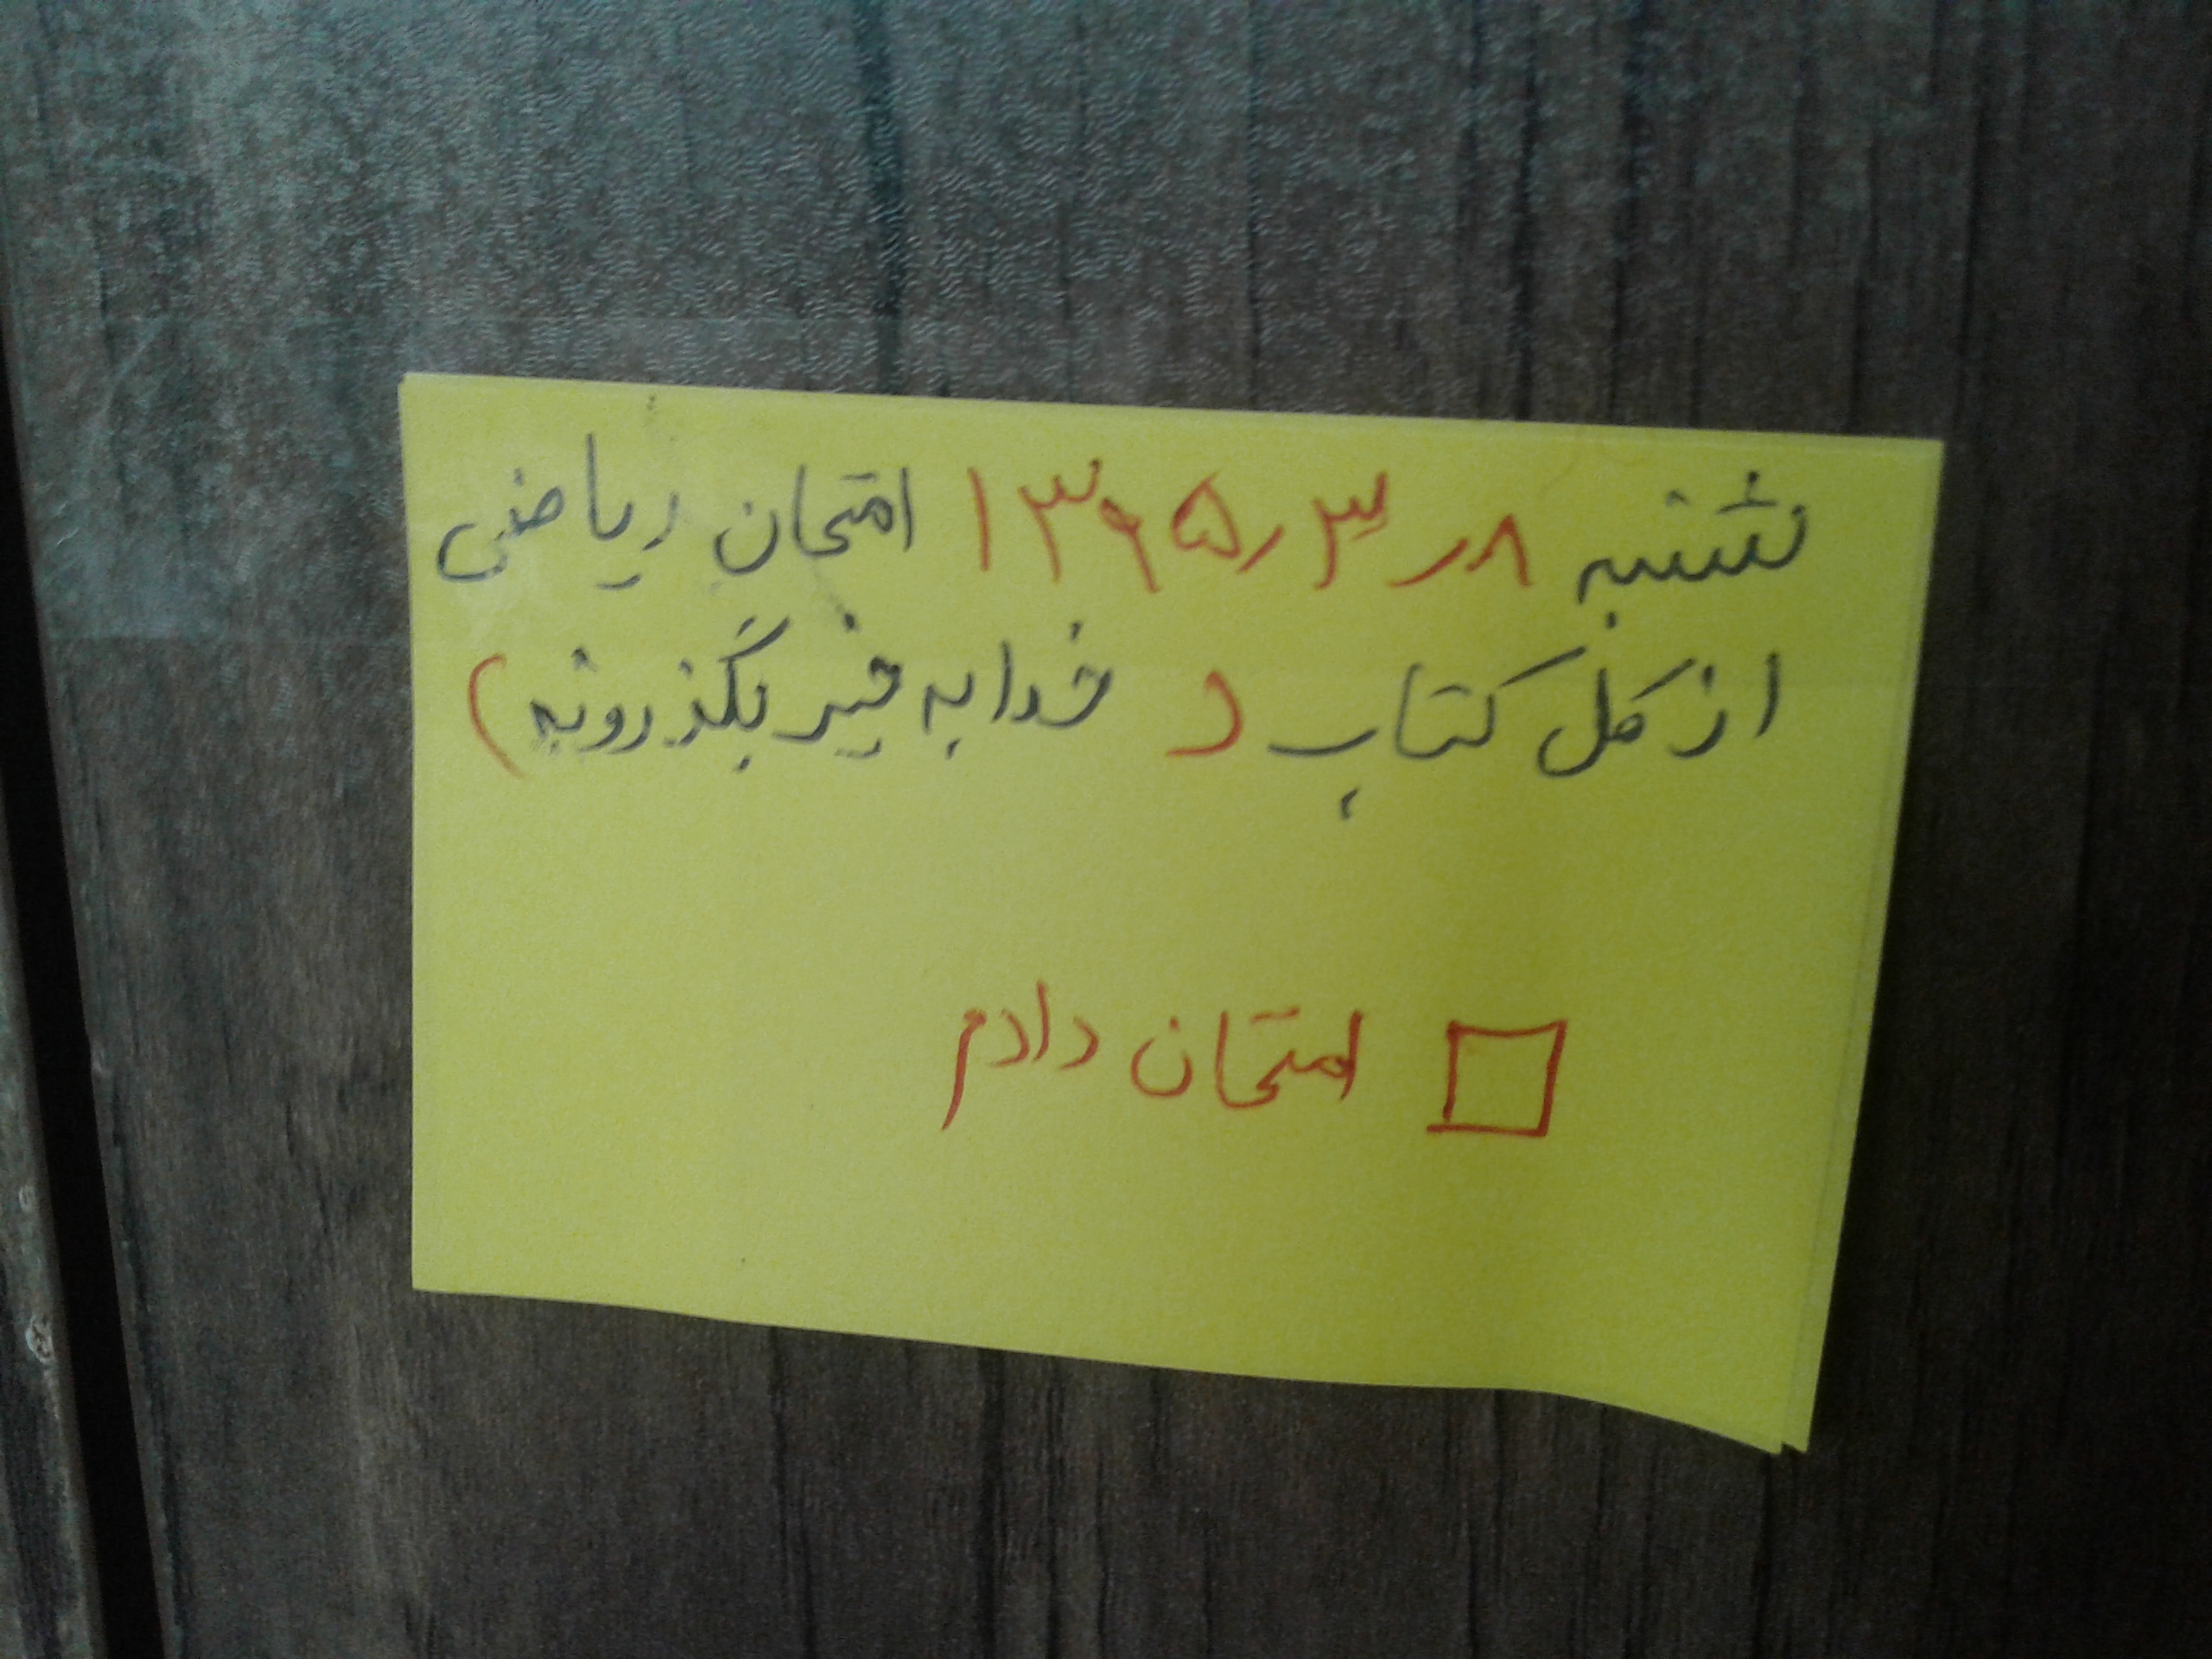 شنبه ۱۳۹۵/۳/۸ امتحان ریاضی
از کل کتاب ( خدا به خیر بگذرونه )
امتحان دادم